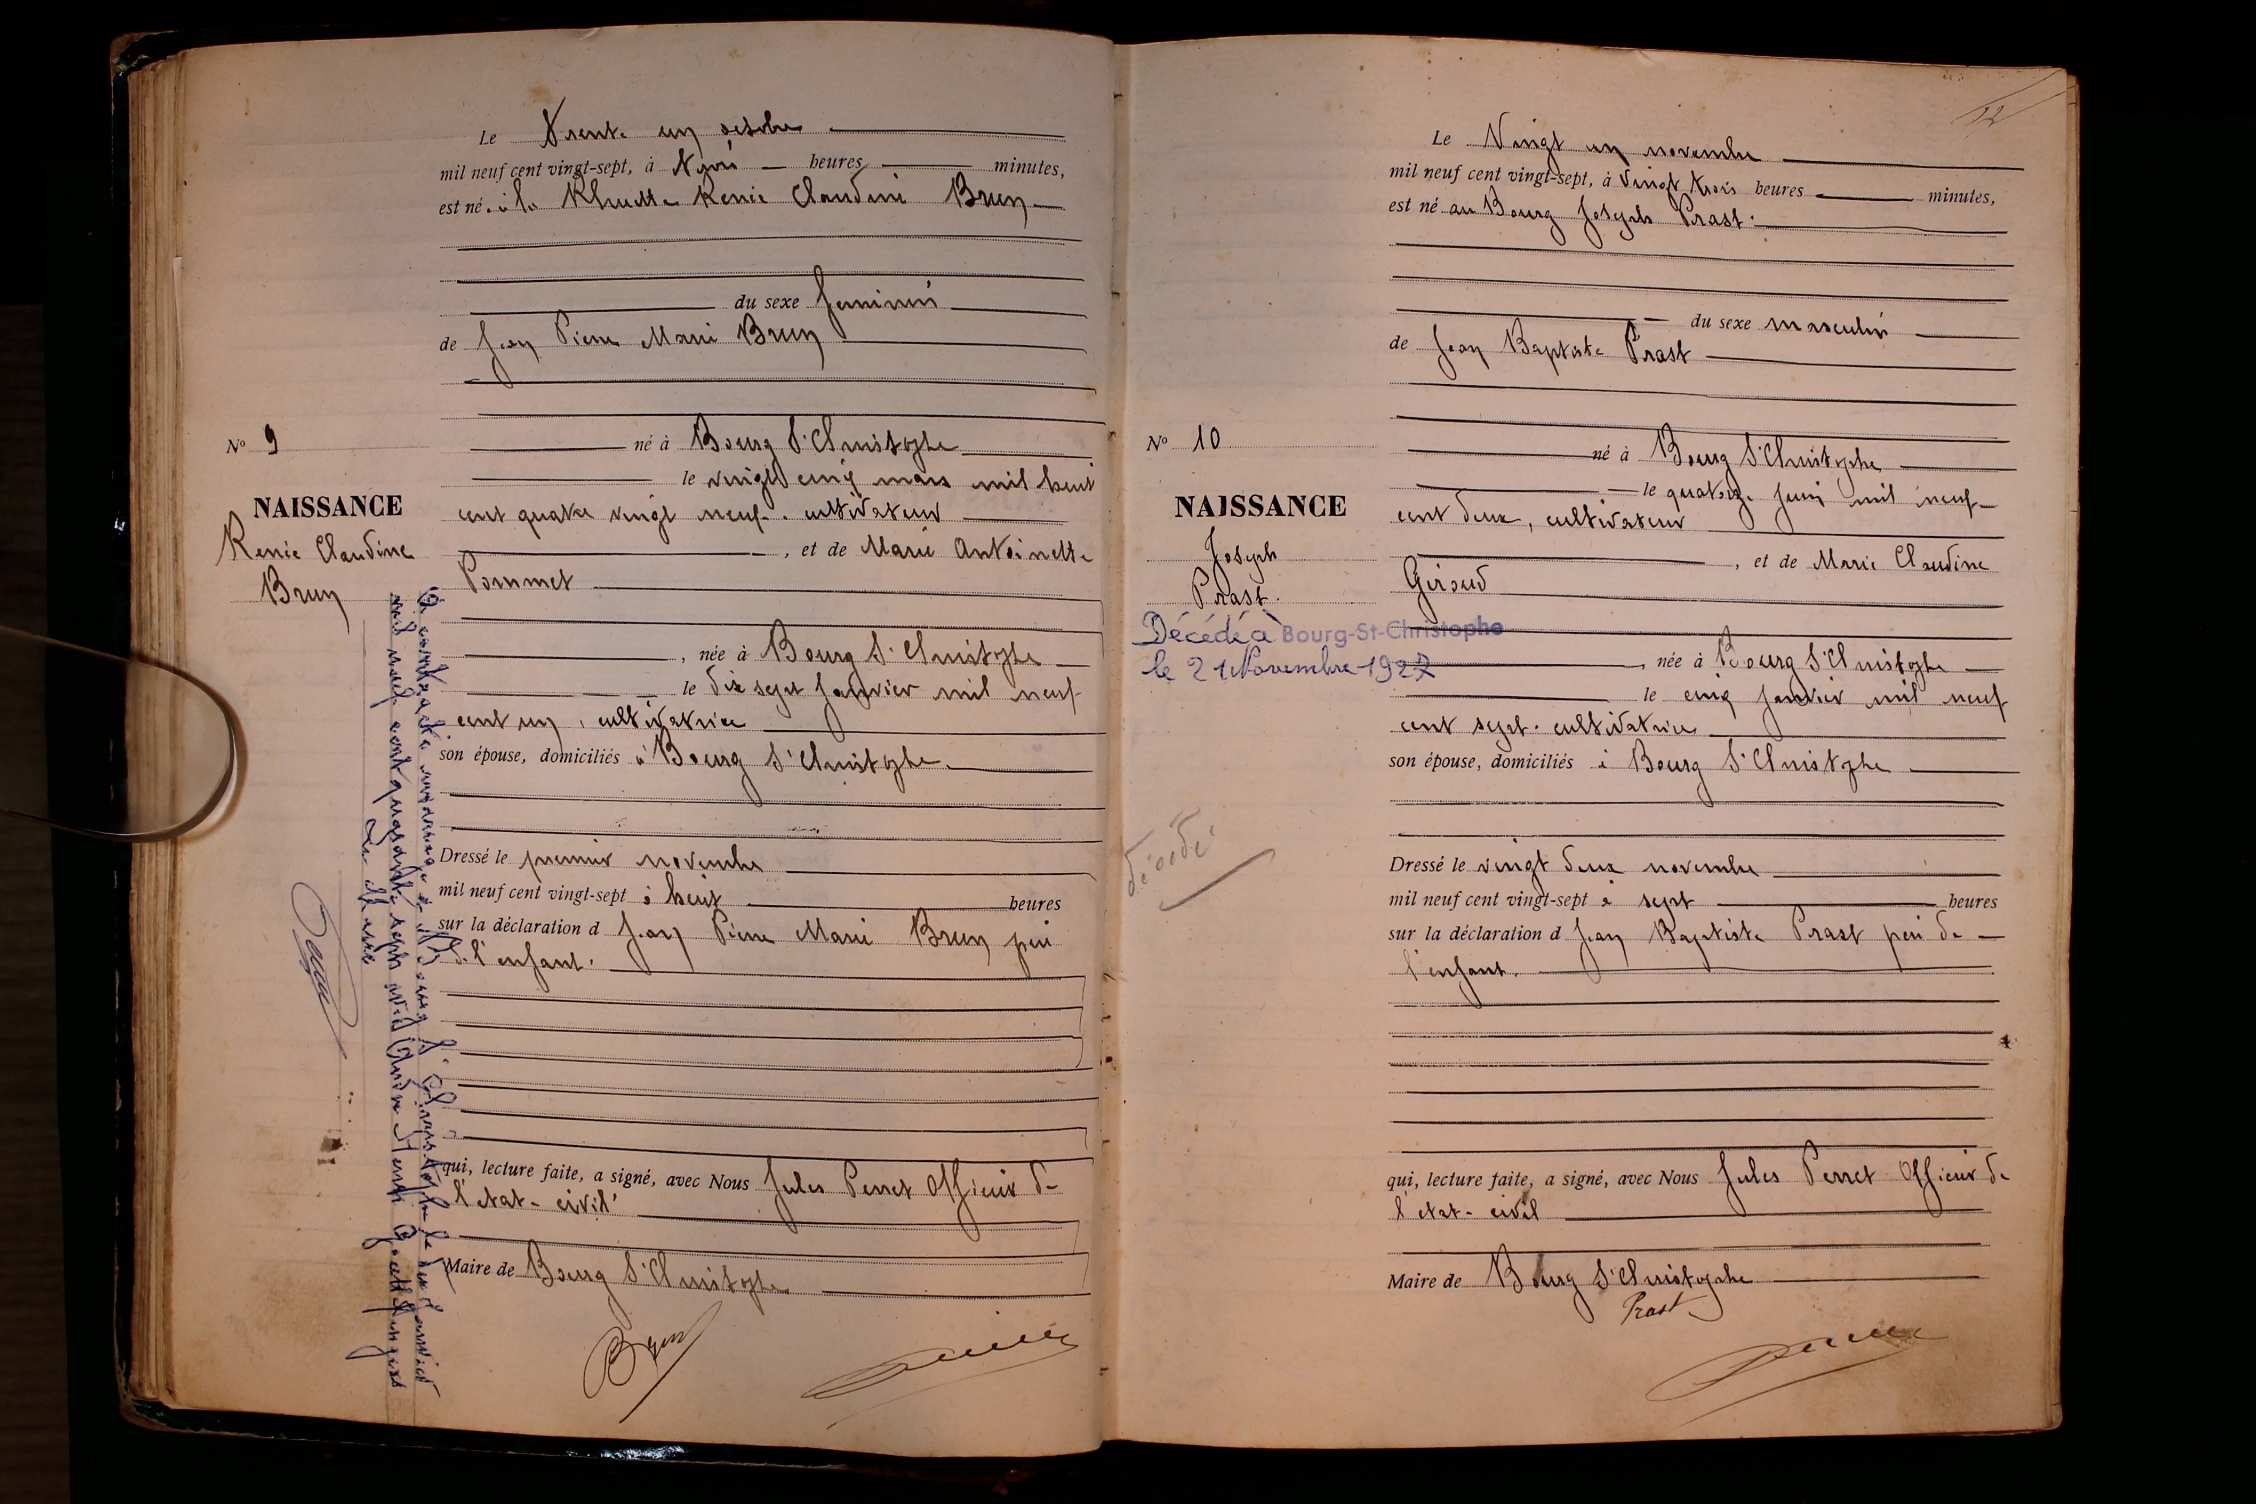 Le Trente un octobre
mil neuf cent vingt-sept, à trois heures minutes,
est né à la Renée Claudine Brun
du sexe feminin
de Jean Pierre Marie Brun
né à Bourg St Christophe
le vingt cinq mars mil huit
cent quatre vingt neuf. cultivateur
, et de Marie Antoinette
Pommet
, née à Bourg St Christophe
le dix sept Janvier mil neuf
cent un, cultivatrice
son épouse, domiciliés à Bourg St Christophe.
Dressé le premier novembre
mil neuf cent vingt-sept à huit heures
sur la déclaration d Jean Pierre Marie Brun père
de l'enfant.
qui, lecture faite, a signé, avec Nous Jules Perret Officier de
l'etat-civil
Maire de Bourg St Christophe
Brun
No 9
NAISSANCE
Renée Claudine
Brun
A contracté mariage à Bourg St Christophe le
mil neuf cent quarante sept avec André
Le Maire
12
Le Vingt un novembre
mil neuf cent vingt-sept, à vingt trois heures minutes,
est né au Bourg Joseph Prast.
du sexe masculin
de Jean Baptiste Prast
né à Bourg St Christophe
le quatorze Juin mil neuf
cent deux, cultivateur
, et de Marie Claudine
Giroud
, née à Bourg St Christophe
le cinq janvier mil neuf
cent sept. cultivatrice
son épouse, domiciliés à Bourg St Christophe
Dressé le vingt deux novembre
mil neuf cent vingt-sept à sept heures
sur la déclaration d Jean Baptiste Prast père de
l'enfant.
qui, lecture faite, a signé, avec Nous Jules Perret Officier de
l'etat-civil
Maire de Bourg St Christophe
Prast
No 10
NAISSANCE
Joseph
Prast.
Décédé à Bourg-St-Christophe
le 21 Novembre 1927
décédé